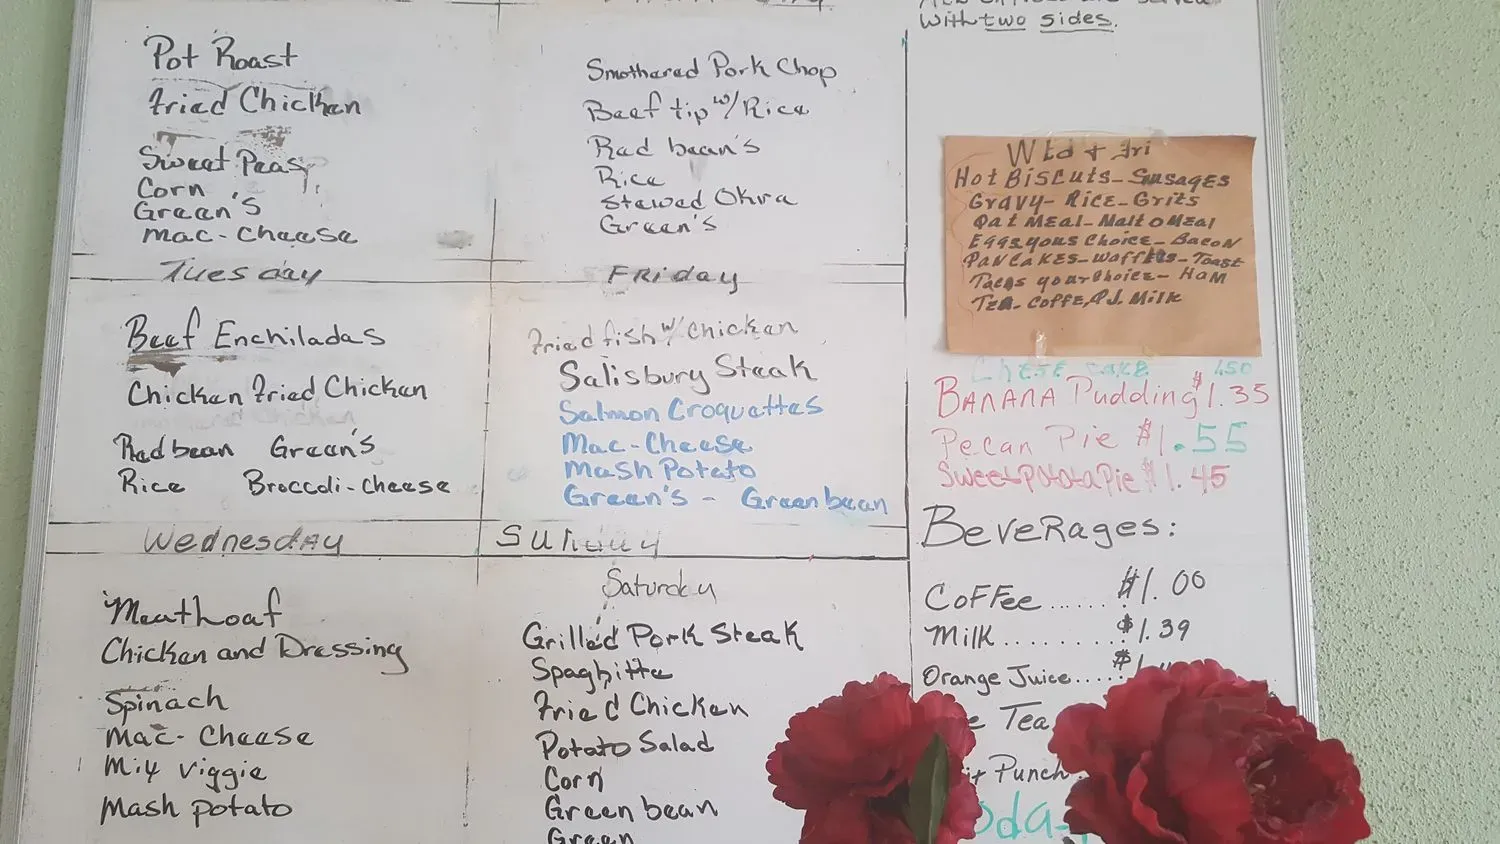 Pot Roast
Fried Chicken
Sweet Peas
Corn
Green's
Mac-Cheese
Tuesday
Beef Enchiladas
Chicken Fried Chicken
Red bean Green's
Rice Broccoli-cheese
Wednesday
Meathoaf
Chicken and Dressing
Spinach
Mac-Cheese
Mix viggie
Mash potato
Smothered Pork Chop
Beef tip w/ Rice
Red bean's
Rice
Stewed Okra
Green's
Friday
Fried fish w/ chicken
Salisbury Steak
Salmon Croquettes
Mac-Cheese
Mash Potato
Green's - Green bean
Saturday
Grilled Pork Steak
Spaghitte
Fried Chicken
Potato Salad
Corn
Green bean
Green
with two sides.
Wed + Fri
Hot Biscuts-Susages
Gravy-Rice-Grits
Oat Meal-Malt o Meal
Eggs yous Choice-Bacon
Pancakes-Waffles-Toast
Tacos your choice-Ham
Tea-Coffe, O.J. Milk
Chese cake 1.50
Banana Pudding $1.35
Pecan Pie $1.55
Sweet potota Pie $1.45
Beverages:
Coffee...... $1.00
Milk......... $1.39
Orange Juice..... $1.
Tea
Punch